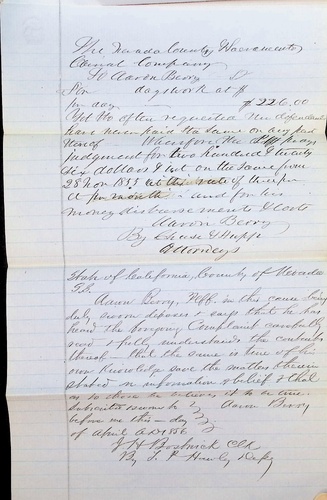 The Nevada County & Sacramento
Canal Company
To Aaron Berry Dr
For days work at $
per day $226.00
Yet tho often requested the defendant
have never paid the same or any part
thereof Wherefore the Plff prays
judgment for two hundred & twenty
six dollars & int on the same from
28 Nov 1855 at the rate of
per month and for his
money disbursements & costs
Aaron Berry
By
Attorneys
State of California, County of Nevada
SS.
Aaron Berry, Plff. in this cause being
duly sworn deposes & says that he has
heard the foregoing Complaint carefully
read & fully understands the contents
thereof – that the same is true of his
own Knowledge save the matters therein
stated on information & belief & that
as to those he believes it to be true
Subscribed & sworn to Aaron Berry
before me this – day
of April AD 1856
J H Bostwick Clk
By T. P. Hawley Depty